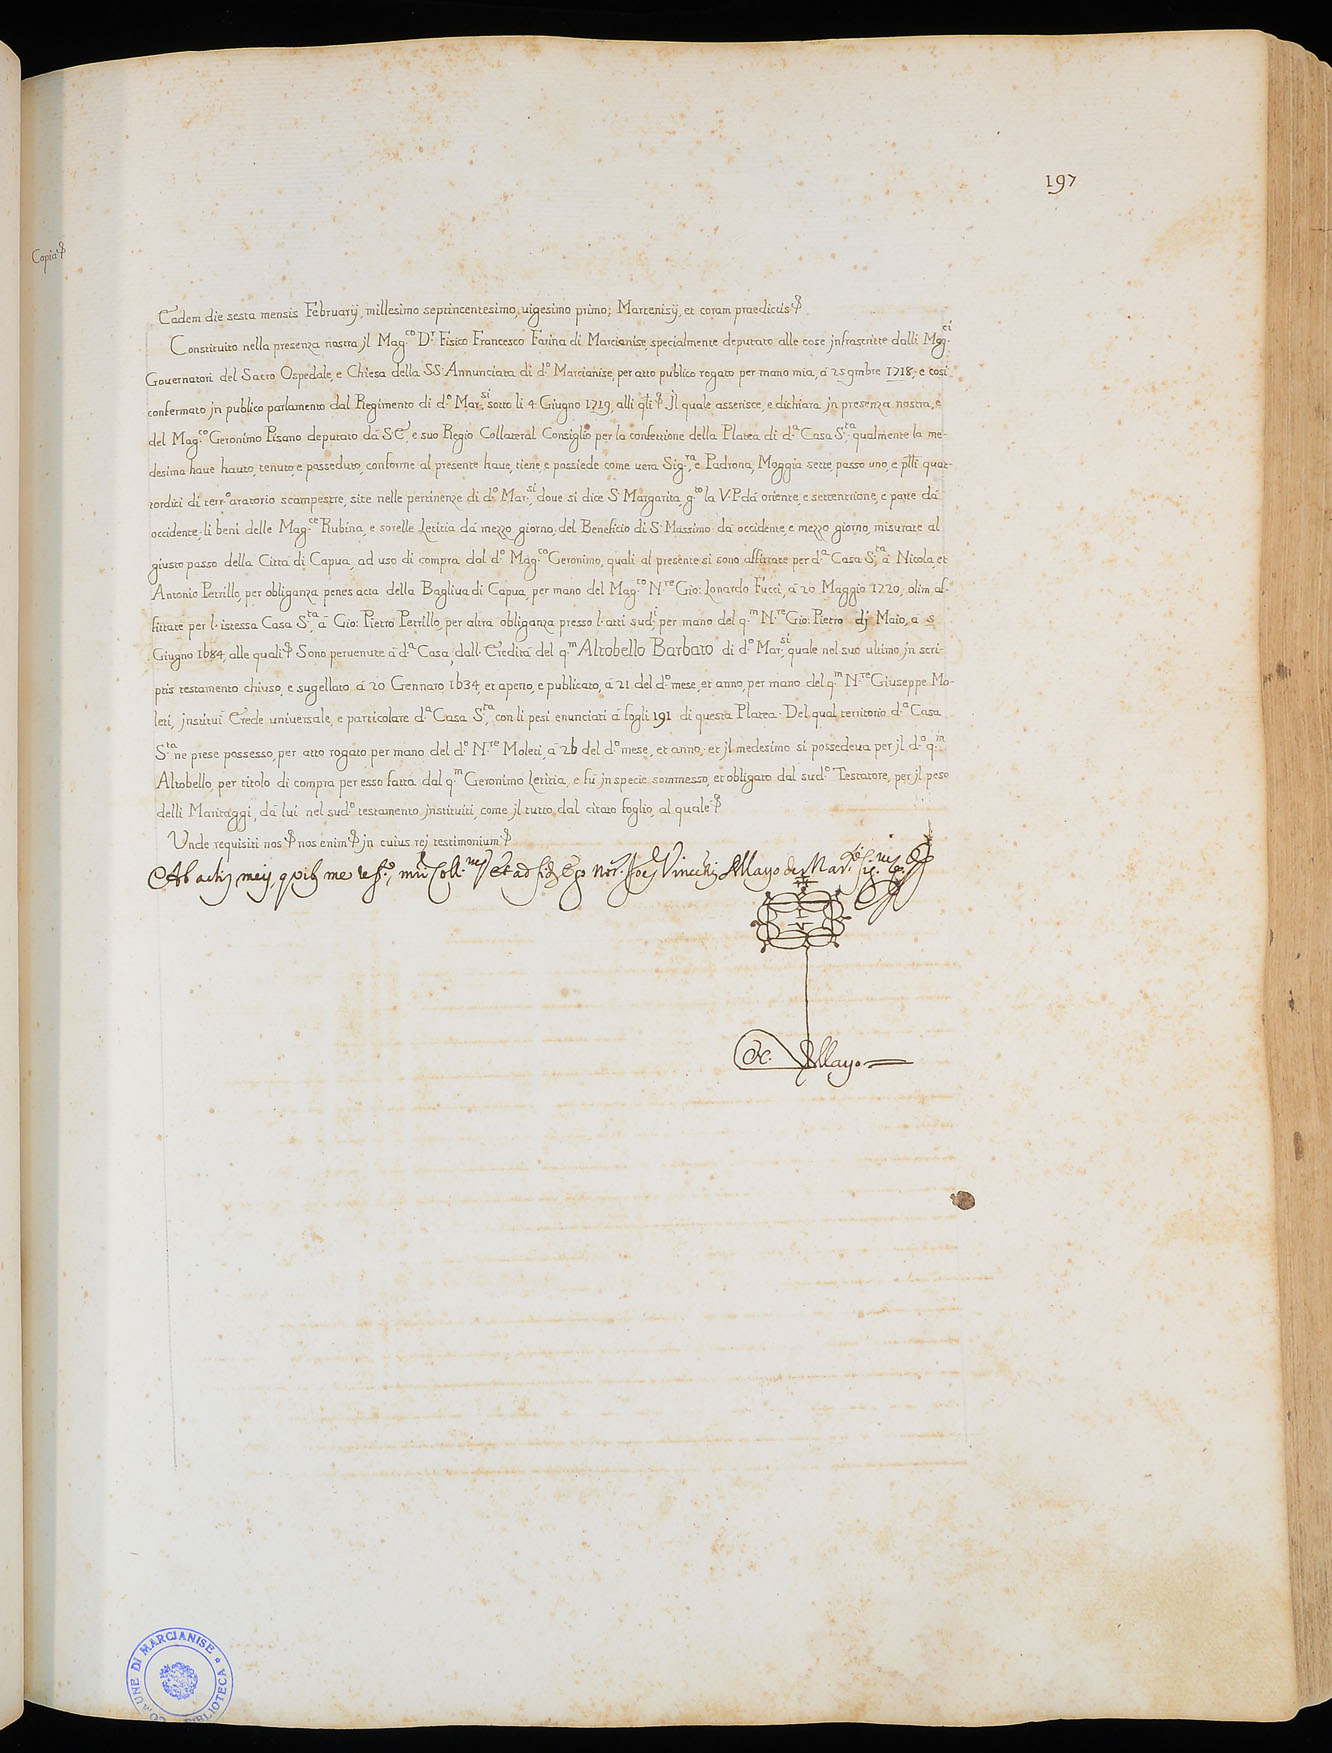 197
Copia
Eadem die sesta mensis Februarij, millesimo septincentesimo, uigesimo primo; Martenisij, et coram praedictis
Constituito nella presenza nostra jl Mag.co D.r Fisico Francesco Farina di Marcianise, specialmente deputato alle cose jnfrascritte dalli Mag.ci
Gouernatori del Sacro Ospedale, e Chiesa della SS. Annunciata di d.o Marcianise, per atto publico rogato per mano mia, à 25 9mbre 1718, e cosi
confermato jn publico parlamento dal Regimento di d.o Mar.si sotto li 4 Giugno 1719, alli q̃li. Jl quale asserisce, e dichiara jn presenza nostra, e
del Mag.co Geronimo Pisano deputato dà S. E., e suo Regio Collateral Consiglio per la confettione della Platea di d.a Casa S.ta, qualmente la me-
desima haue hauto, tenuto, e posseduto, conforme al presente haue, tiene, e possiede come uera Sig.ra, e Padrona, Moggia sette, passo uno, e p̃lli quat-
tordici di terr.o aratorio scampestre, site nelle pertinenze di d.o Mar.si, doue si dice S. Margarita, g.to la V. P. dà oriente, e settentrione, e parte dà
occidente, li beni delle Mag.ce Rubina, e sorelle Letitia dà mezzo giorno, del Beneficio di S. Massimo dà occidente, e mezzo giorno, misurate al
giusto passo della Città di Capua, ad uso di compra dal d.o Mag.co Geronimo, quali al presente si sono affittate per d.a Casa S.ta, à Nicola, et
Antonio Petrillo, per obliganza penes acta della Bagliua di Capua, per mano del Mag.co N.re Gio: Lonardo Fucci, à 20 Maggio 1720, olim af-
fittate per l'istessa Casa S.ta, à Gio: Pietro Petrillo, per altra obliganza presso l'atti sud.i, per mano del q.m N.re Gio: Pietro dj Maio, a 5
Giugno 1684, alle quali. Sono peruenute à d.a Casa, dall'Eredità del q.m Altobello Barbato di d.o Mar.si, quale nel suo ultimo jn scri-
ptis testamento chiuso, e sugellato à 20 Gennaro 1634, et aperto, e publicato, à 21 del d.o mese, et anno, per mano del q.m N.re Giuseppe Mo-
leti, jnstituì Erede uniuersale, e particolare d.a Casa S.ta, con li pesi enunciati à fogli 191 di questa Platea. Del qual territorio d.a Casa
S.ta ne prese possesso, per atto rogato per mano del d.o N.re Moleti, à 26 del d.o mese, et anno, et jl medesimo si possedeua per jl d.o q.m
Altobello, per titolo di compra per esso fatta dal q.m Geronimo Letitia, e fù jn specie sommesso, et obligato dal sud.o Testatore, per jl peso
delli Maritaggi, dà lui nel sud.o testamento jnstituiti, come jl tutto, dal citato foglio, al quale
Unde requisiti nos nos enim jn cuius rej testimonium
Ab actis meis, quib9 me Et ad fid. Ego Not.s Joes Vincen. Mayo de Mar.
de Mayo
COMUNE DI MARCIANISE * BIBLIOTECA